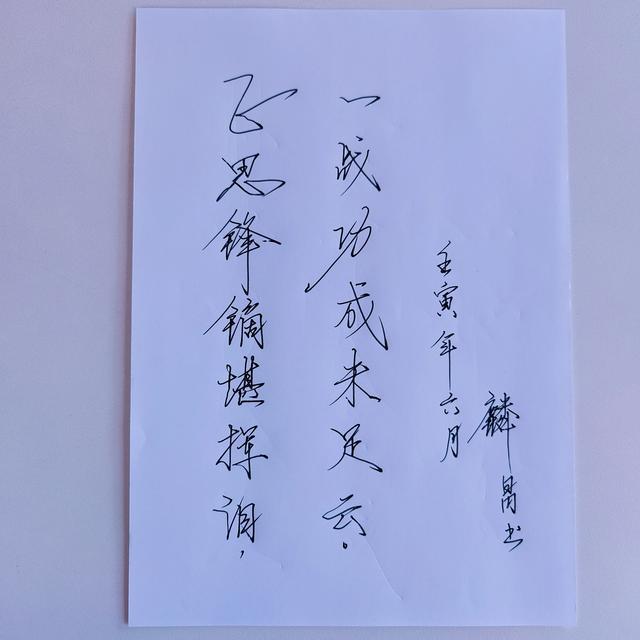 正思锋镝堪挥泪，
一战功成未足云。
壬寅年六月
麟昌书